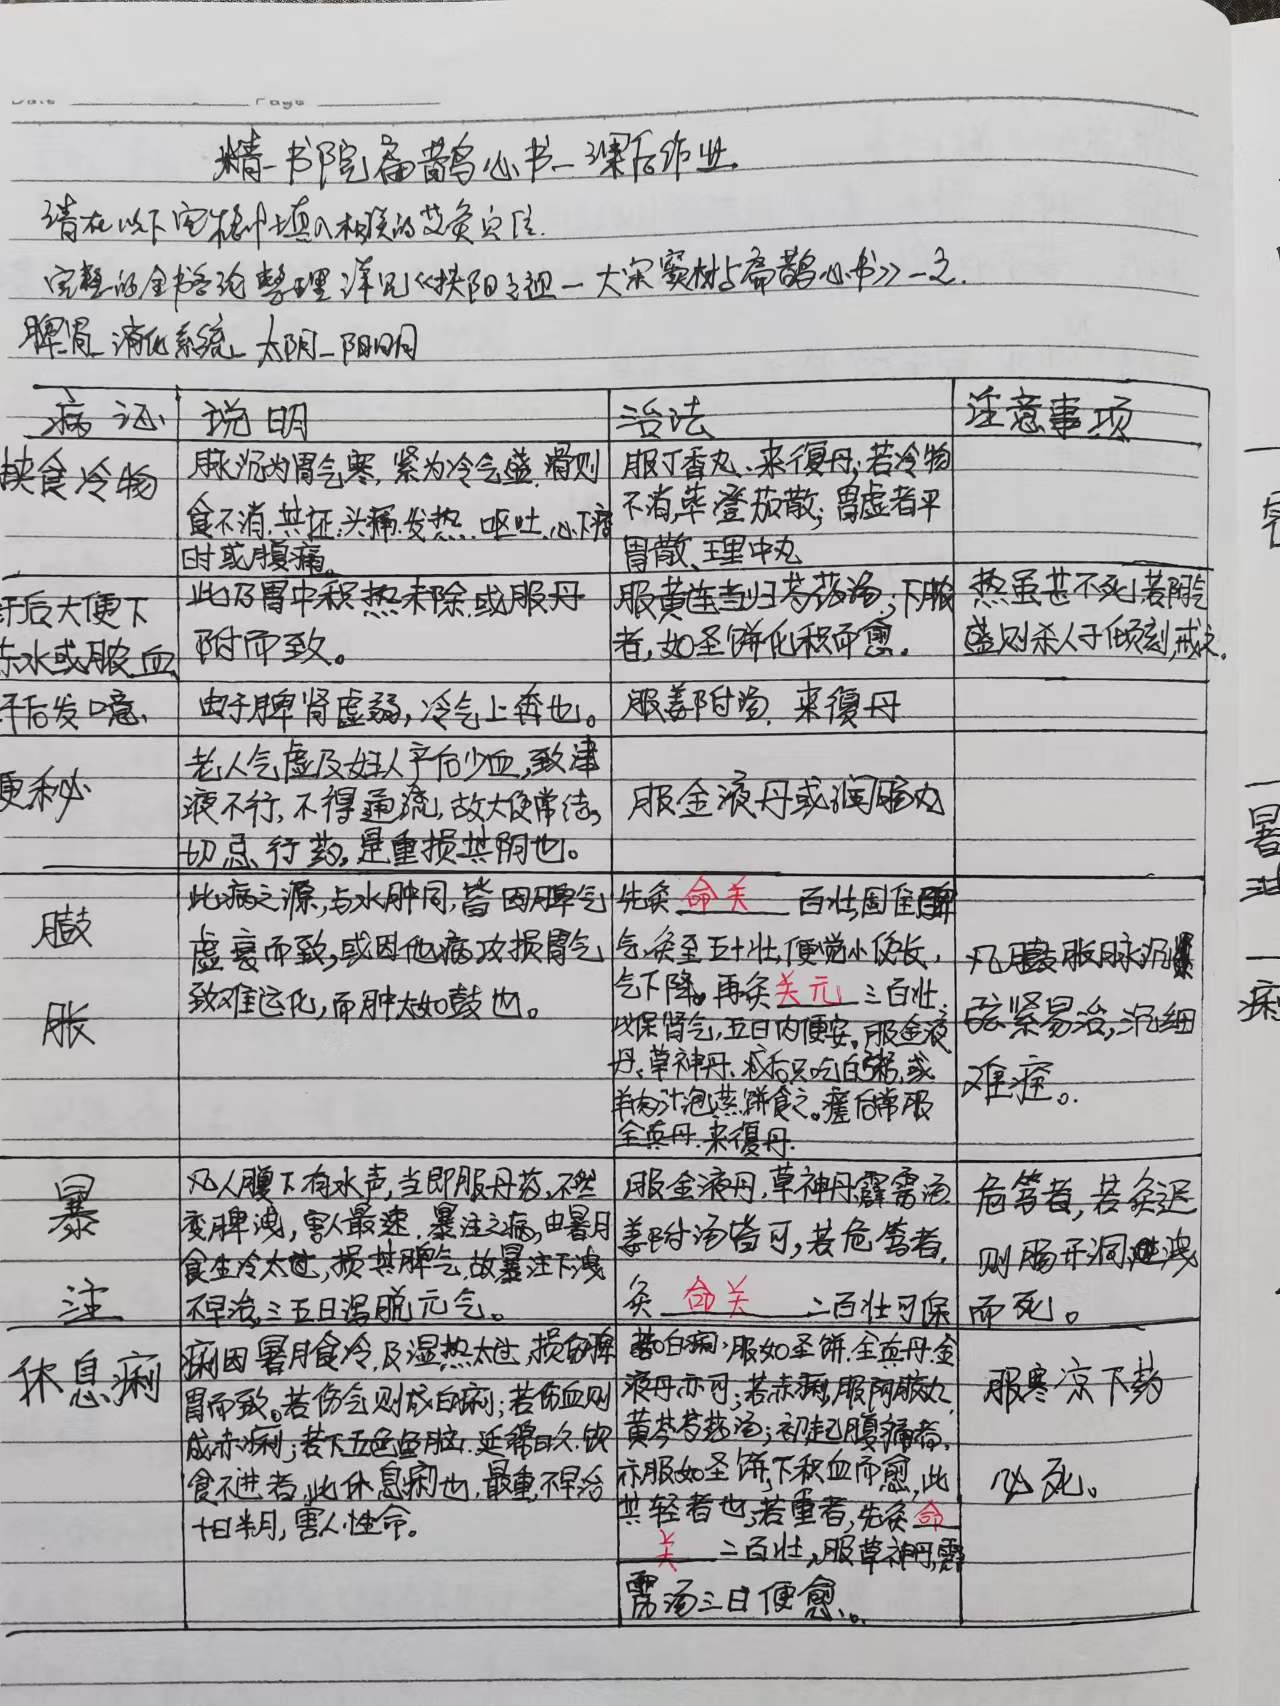 Date Page
精一书院扁鹊心书—课后作业
请在以下空格中填入相关的艾灸穴位.
完整的全书各论整理详见《扶阳之祖—大宋窦材与扁鹊心书》一文.
脾胃—消化系统—太阴—阳明
病证
说明
治法
注意事项
挟食冷物
脉沉为胃气寒,紧为冷气盛.滑则
食不消.其证.头痛.发热.呕吐.心下痞
时或腹痛。
服丁香丸、来復丹,若冷物
不消,荜澄茄散;胃虚者平
胃散、理中丸
汗后大便下
赤水或脓血
此乃胃中积热未除.或服丹
附而致。
服黄连当归芍药汤;下脓
者,如圣饼化积而愈.
热虽甚不死,若阴气
盛则杀人于倾刻,戒之.
汗后发噫
由于脾肾虚弱,冷气上奔也。
服姜附汤.来復丹
便秘
老人气虚及妇人产后少血,致津
液不行,不得通流,故大便常结。
切忌行药,是重损其阴也。
服金液丹或润肠丸
臌
胀
此病之源,与水肿同,皆因脾气
虚衰而致,或因他病攻损胃气
致难运化,而肿大如鼓也。
先灸 命关 百壮,固住脾
气,灸至五十壮,便觉小便长,
气下降。再灸关元三百壮,
以保肾气,五日内便安。服金液
丹、草神丹、减后只吃白粥,或
羊肉汁泡蒸饼食之。瘥后常服
全真丹.来復丹.
凡臌胀脉沉
弦紧易治,沉细
难痊。
暴
注
凡人腹下有水声,当即服丹药,不然
变脾洩,害人最速.暴注之病,由暑月
食生冷太过,损其脾气.故暴注下洩
不早治,三五日泻脱元气。
服金液丹,草神丹,霹雳汤
姜附汤皆可,若危笃者,
灸 命关 二百壮可保
危笃者,若灸迟
则肠开洞洩
而死。
休息痢
痢因暑月食冷,及湿热太过,损伤脾
胃而致。若伤气则成白痢;若伤血则
成赤痢;若下五色鱼脑.延绵日久.饮
食不进者,此休息痢也,最重,不早治
十日半月,害人性命。
白痢,服如圣饼.全真丹.金
液丹亦可;若赤痢,服阿胶丸、
黄芩芍药汤;初起腹痛者,
亦服如圣饼,下积血而愈,此
其轻者也,若重者,先灸命
关 二百壮,服草神丹,霹
雳汤三日便愈。
服寒凉下药
必死。
暑
痢